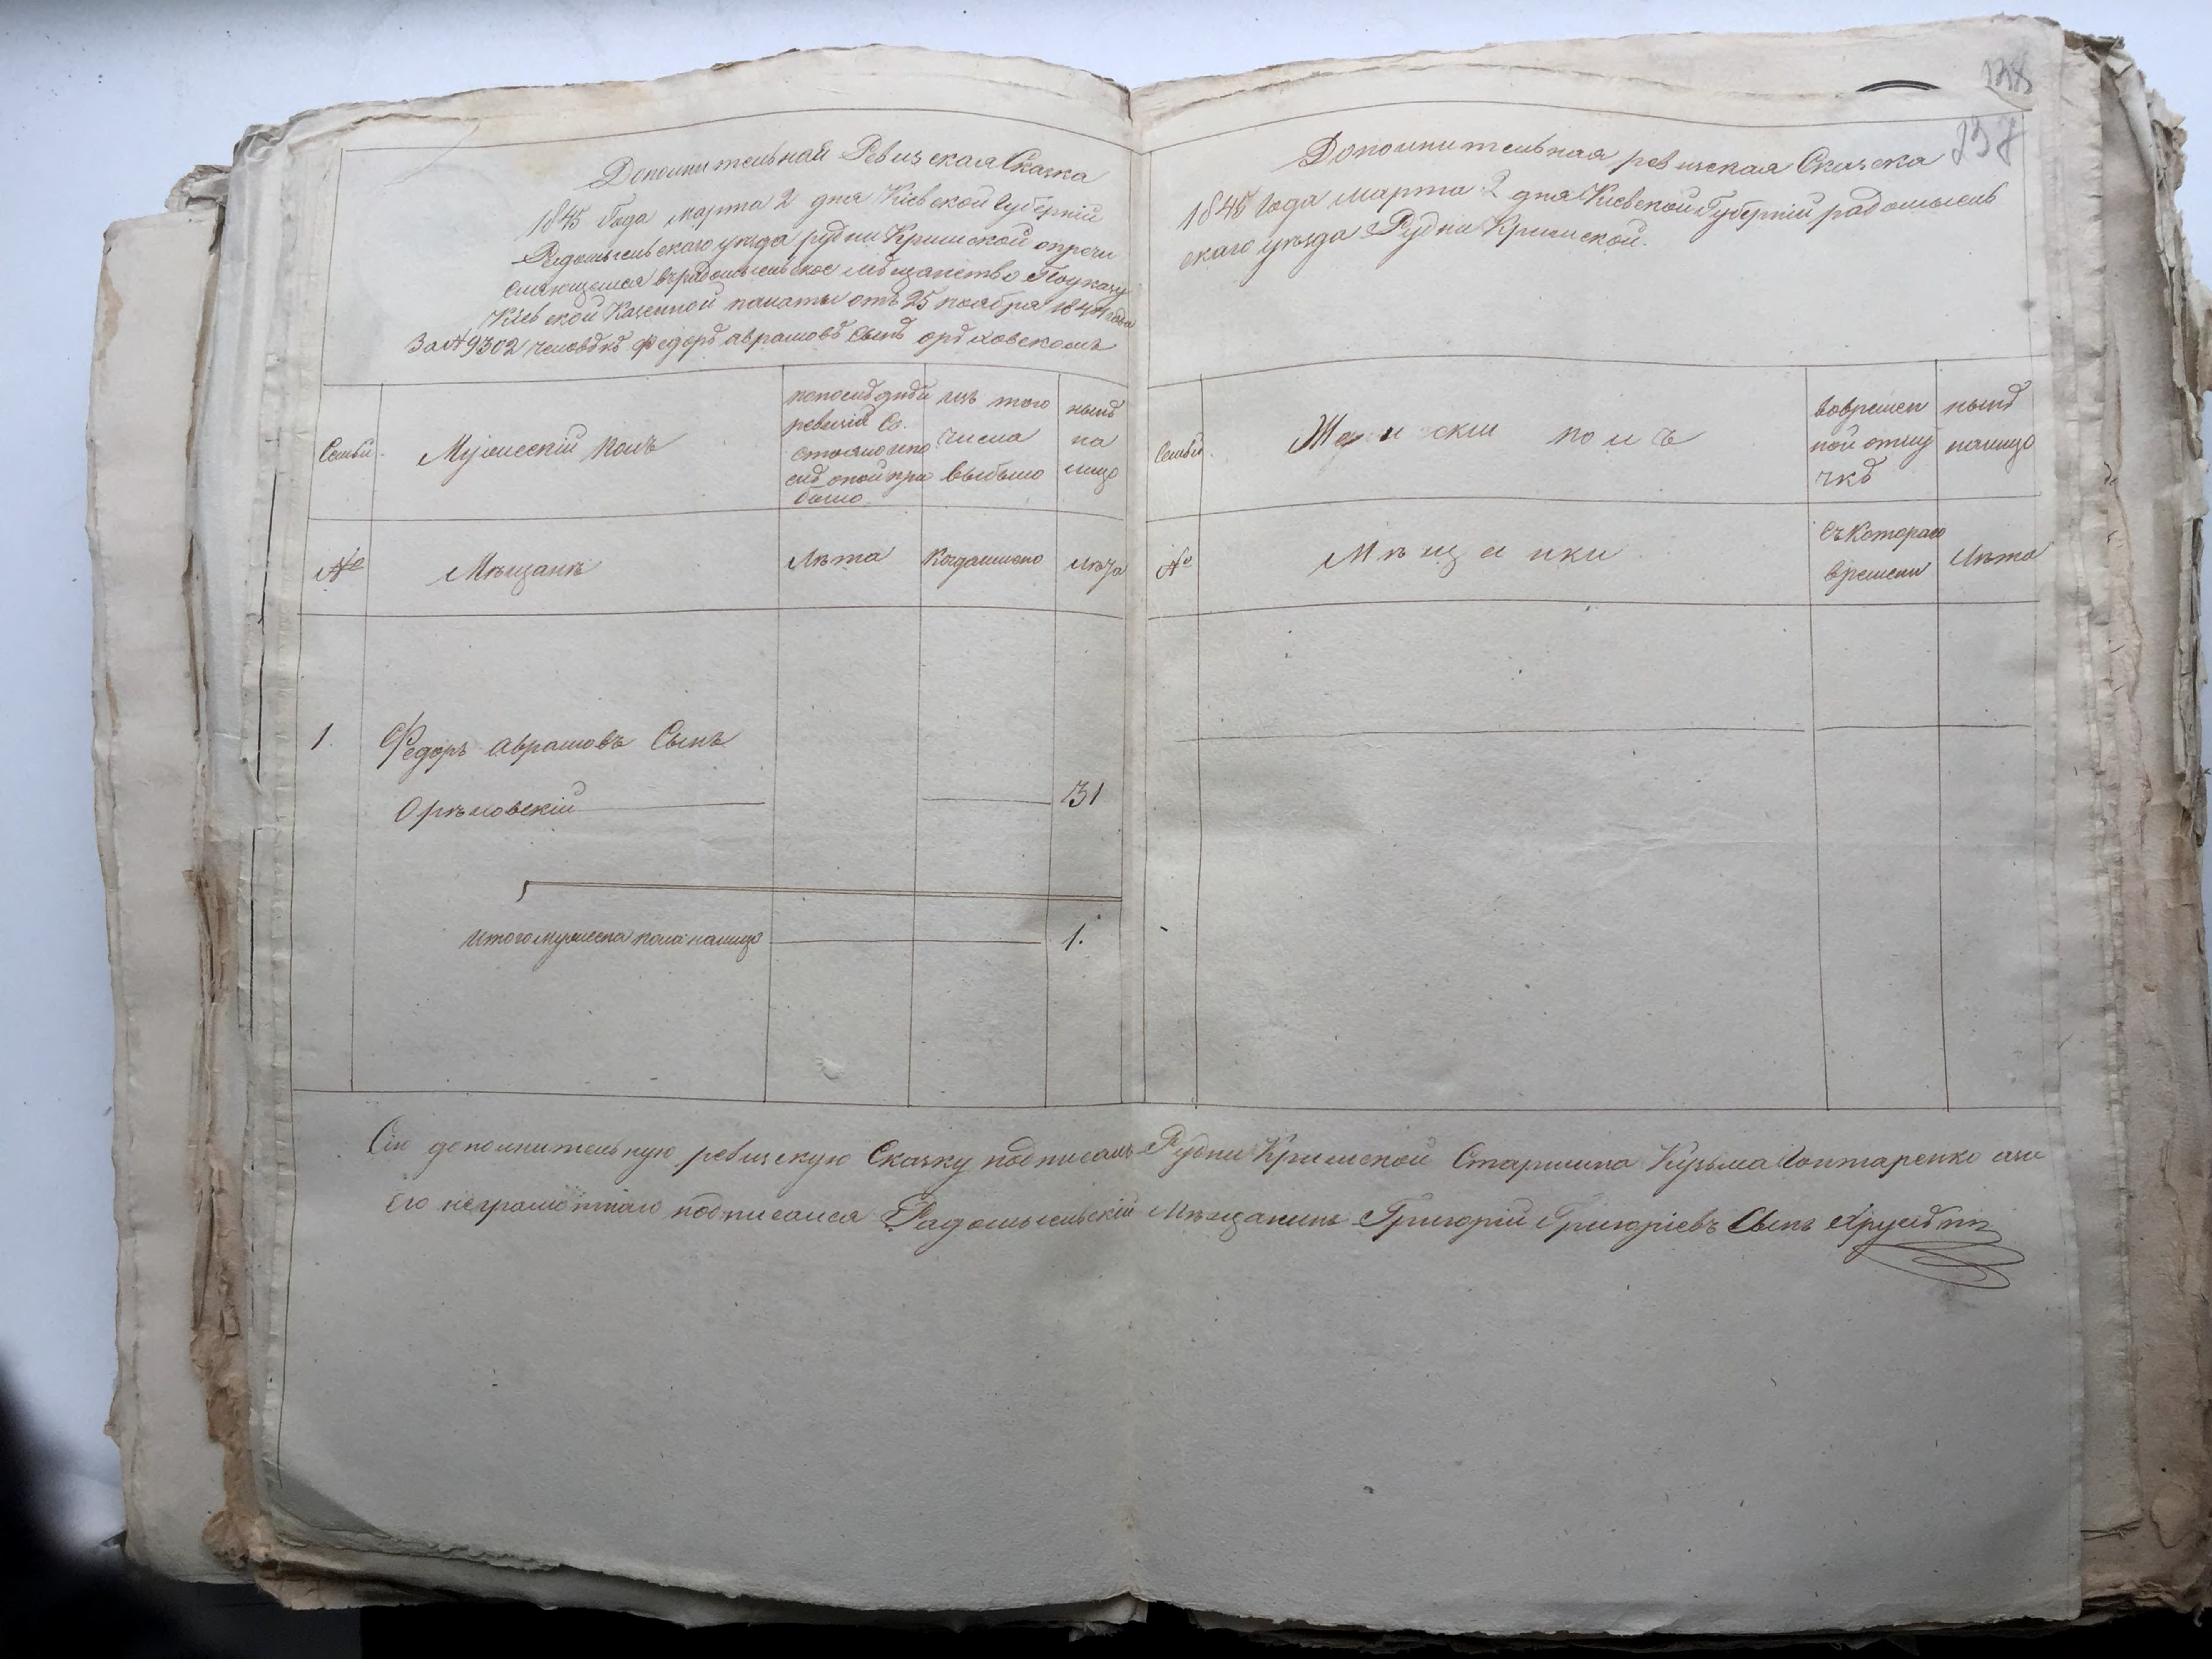 Дополнительная Ревизская Сказка
1845 Года марта 2 дня Кіевской Губерніи
Радомысльскаго уезда рудни Кримской опричи
сляющемся въ радомысльское мѣщанство По указу
Кіевской Казенной палаты отъ 25 ноября 1844 года
За № 9302 человѣкѣ Федорѣ аврамовѣ сынѣ орѣховскомъ
Семьи
Мужескій полъ
по послѣдней
ревизіи Со
стояло и по
слѣ оной при
было
изъ того
числа
выбыло
нынѣ
на
лицо
№
Мѣщане
Лѣта
Когда именно
Лѣта
1.
Федоръ Аврамовъ Сынъ
Орѣховскій
31
Итого мужеска пола налицо
1.
138
237
Дополнительная ревизская Сказка
1845 Года марта 2 дня Кіевской Губерніи радомысль
скаго уезда Рудни Кримской.
Семьи
Женскій полъ
во времен
ной отлу
чкѣ
нынѣ
налицо
№
Мѣщанки
Съ Котораго
времени
Лѣта
Сію дополнительную ревизскую Сказку подписалъ Рудни Кримской Старшина Кузьма Гонтаренко а за
Его неграмотнаго подписался Радомысльскій Мѣщанинъ Григорій Григоріевъ Сынъ